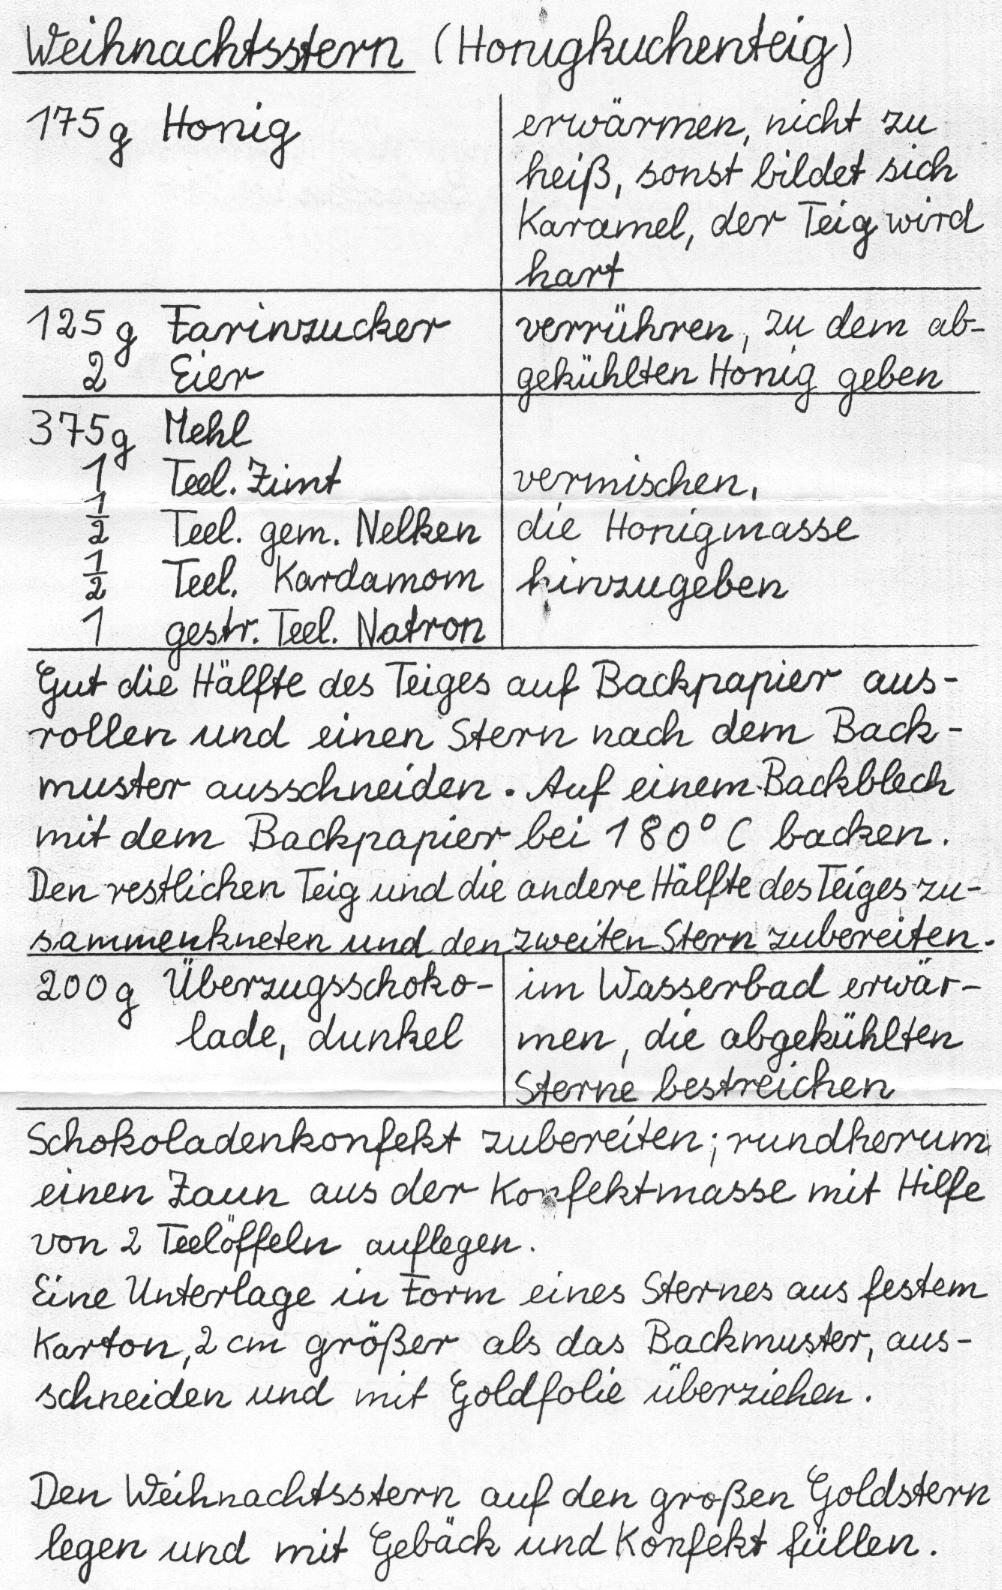 Weihnachtsstern (Honigkuchenteig)
175 g Honig
erwärmen, nicht zu
heiß, sonst bildet sich
Karamel, der Teig wird
hart
125 g Farinzucker
2 Eier
verrühren, zu dem ab-
gekühlten Honig geben
375 g Mehl
1 Teel. Zimt
1/2 Teel. gem. Nelken
1/2 Teel. Kardamom
1 gestr. Teel. Natron
vermischen,
die Honigmasse
hinzugeben
Gut die Hälfte des Teiges auf Backpapier aus-
rollen und einen Stern nach dem Back-
muster ausschneiden. Auf einem Backblech
mit dem Backpapier bei 180° C backen.
Den restlichen Teig und die andere Hälfte des Teiges zu-
sammenkneten und den zweiten Stern zubereiten.
200 g Überzugsschoko-
lade, dunkel
im Wasserbad erwär-
men, die abgekühlten
Sterne bestreichen
Schokoladenkonfekt zubereiten; rundherum
einen Zaun aus der Konfektmasse mit Hilfe
von 2 Teelöffeln auflegen.
Eine Unterlage in Form eines Sternes aus festem
Karton, 2 cm größer als das Backmuster, aus-
schneiden und mit Goldfolie überziehen.
Den Weihnachtsstern auf den großen Goldstern
legen und mit Gebäck und Konfekt füllen.